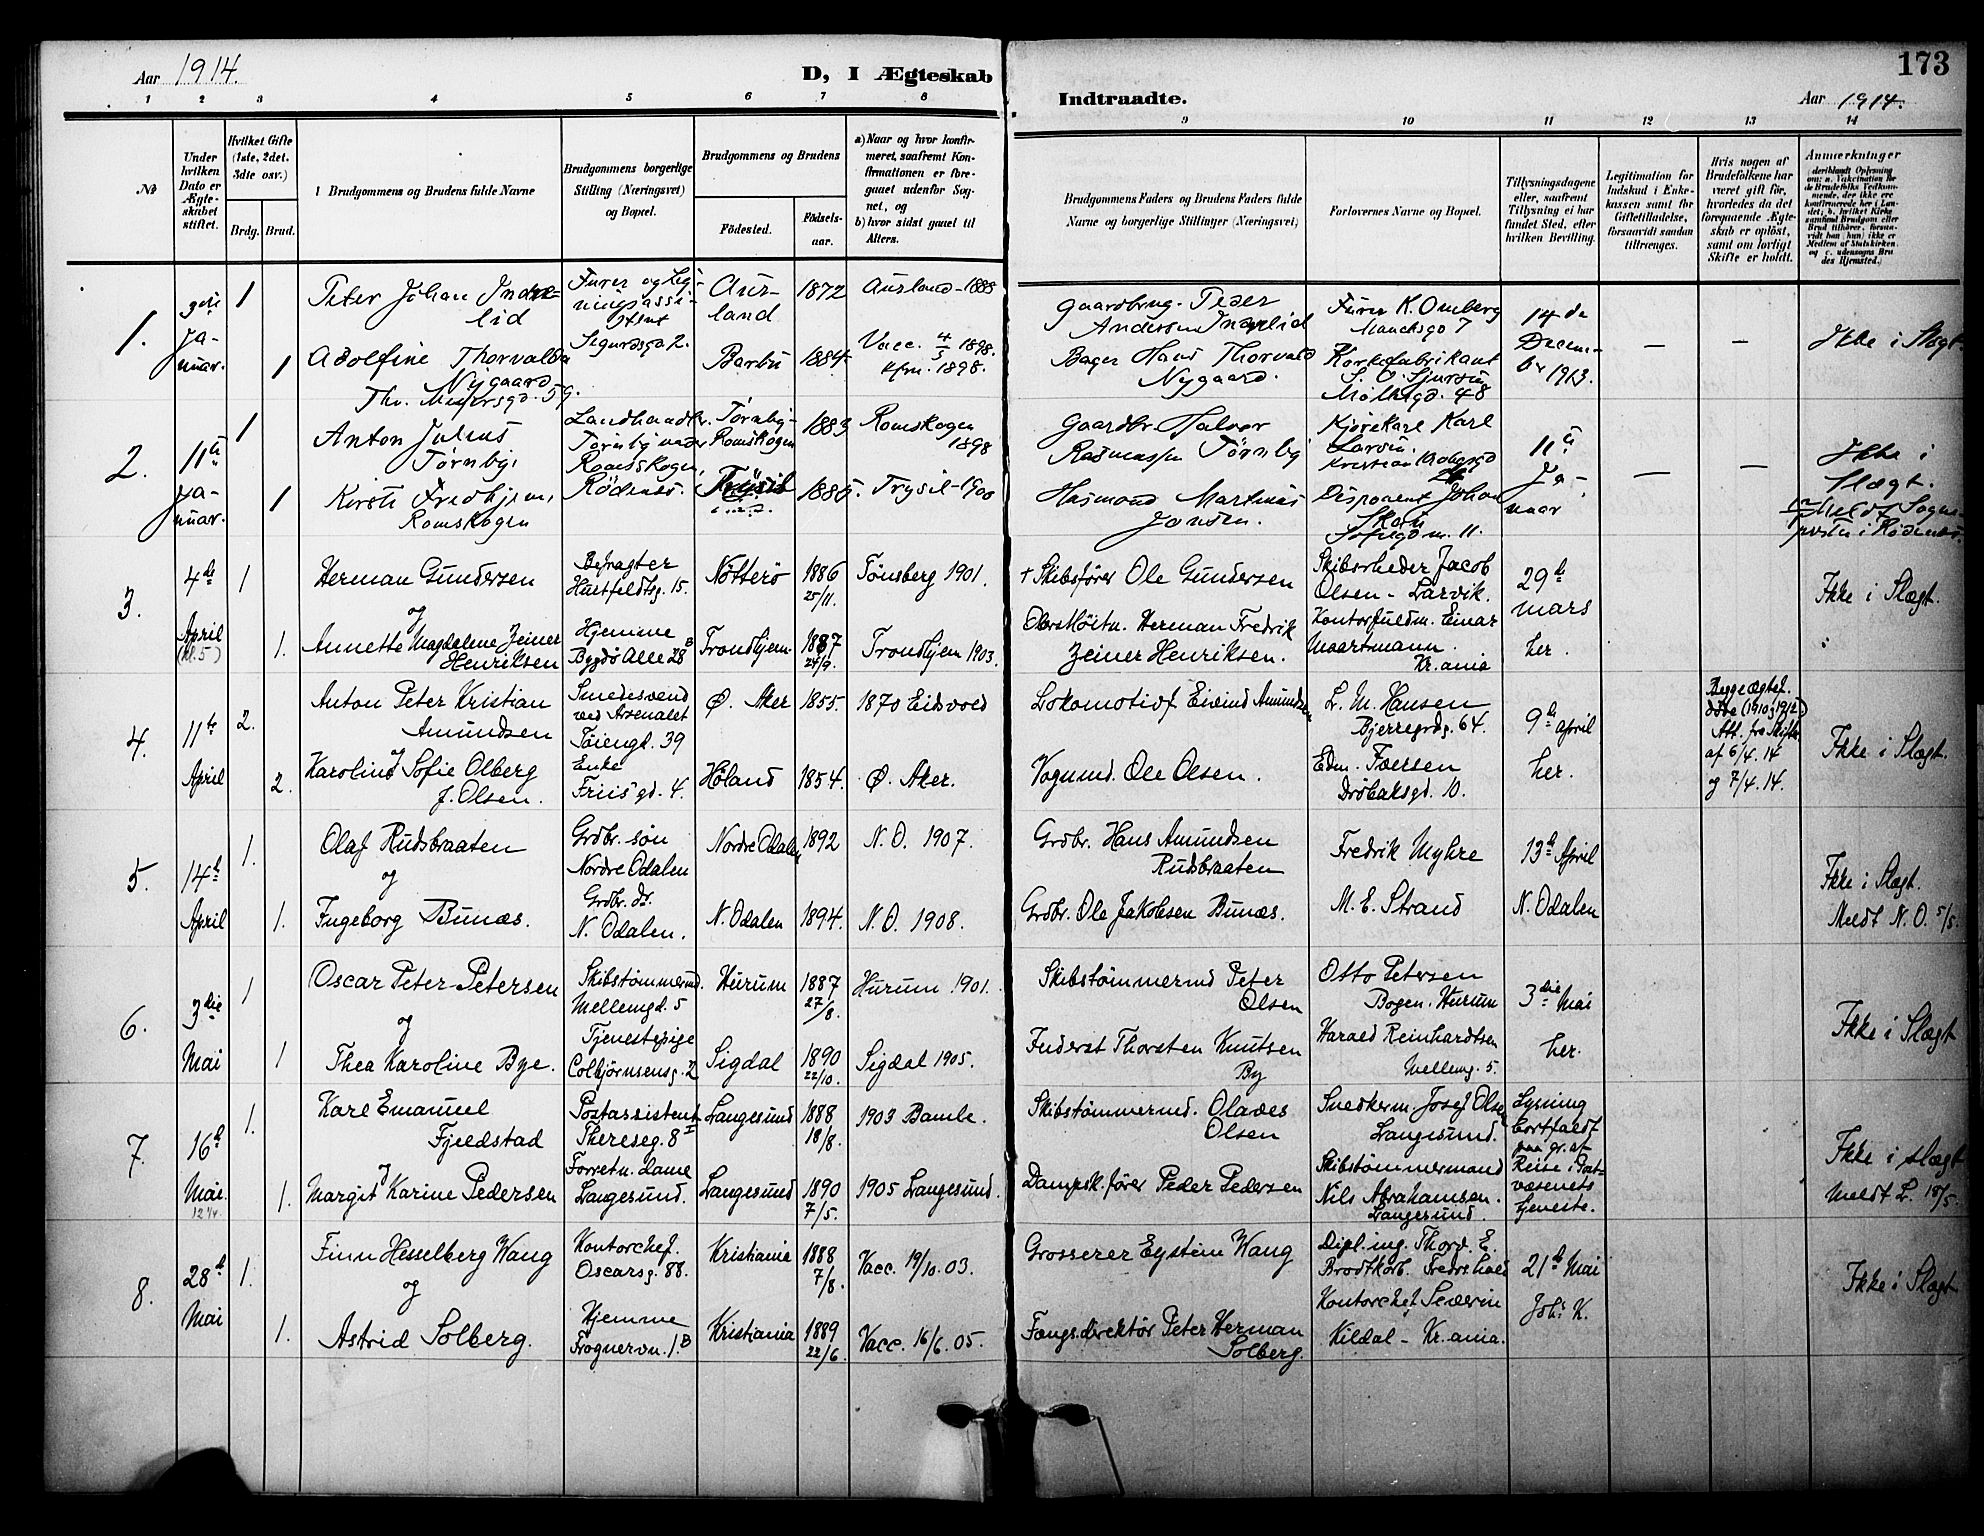 Aar 1914.
D, I Ægteskab
Indtraadte.
Aar 1914.
173
1 2 3 4 5 6 7 8
9 10 11 12 13 14
No
Under hvilken Dato er Ægteskabet stiftet.
Hvilket Gifte (1ste, 2det. 3die osv.)
Brdg. Brud.
Brudgommens og Brudens fulde Navne
Brudgommens borgerlige Stilling (Næringsvei) og Bopæl.
Brudgommens og Brudens
Födested.
Födselsaar.
a) Naar og hvor konfirmeret, saafremt Konfirmationen er foregaaet udenfor Sognet, og
b) hvor sidst gaaet til Alters.
Brudgommens Faders og Brudens Faders fulde Navne og borgerlige Stillinger (Næringsvei)
Forlovernes Navne og Bopæl.
Tillysningsdagene eller, saafremt Tillysning ei har fundet Sted, efter hvilken Bevilling.
Legitimation for Indskud i Enkekassen samt for Giftetilladelse, forsaavidt saadan tiltrænges.
Hvis nogen af Brudefolkene har været gift för, hvorledes da det foregaaende Ægteskab er oplöst, samt om lovligt Skifte er holdt.
Anmærkninger
1. Januar. 1
Peter Johan Indrelid
Sigurdsgd 2.
Aurland
1872
Aurland - 1888
Gaardbrug. Peder Andersen Indrelid
Furer K. Omberg
14de Decembr 1913.
— —
Ikke i Slægt.
1
Adolfine Thorvalda Nygaard
Th. Meyersgd. 59.
Barbu
1884.
Vacc. 4/5 1898.
Kfm. 1898.
Bager Hans Thorvald Nygaard.
Korkefabrikant
Möllergd. 48
2. 11te Januar. 1
Anton Julius Tørnby,
Landhandler.
Romskogen,
Rödenes.
Tørnby - Romskogen
1883
Romskogen 1898
Gaardbr. Halvor Rasmussen Tørnby
Kjørekarl Karl Larsen.
11te Januar
— —
Ikke i Slægt.
1
Kirsti Fredhjem,
Romskogen
Trysil
1885.
Trysil - 1900
Aasmund Martinus Jonsen.
Disponent Johan
Sofiegdn. 11.
3. 4de April (kl. 5) 1
Herman Gundersen
og
Befragter
Huitfeldtsg. 15.
Nötterö
1886 25/11.
Tönsberg 1901.
+ Skibsfører Ole Gundersen
Skibsrheder Jacob Olsen - Larvik.
29de mars her.
Ikke i Slægt.
1.
Annette Magdalene Zeiner Henriksen
Hjemme
Bygdö Alle 28B
Trondhjem
1887 25/9.
Trondhjem 1903.
Oberstløitn. Herman Fredrik Zeiner Henriksen.
Kontorfuldm. Einar Maartmann. Kr.ania
4. 11te April 2.
Anton Peter Kristian Amundsen
og
Smedesvend ved Arsenalet
Töiengt. 39
Ø. Aker
1855.
1870 Eidsvold
Lokomotivf. Eivind Amundsen
L. M. Hansen
Bjerregrdsg. 64.
9de april her.
Begge ægtef. døde (1910 og 1912.) Att. fra Skifter. af 6/4. 14 og 7/4. 14.
Ikke i Slægt.
2.
Karoline Sofie Olberg f. Olsen.
Enke
Friis'gd. 4.
Höland
1854.
Ø. Aker.
Vognmd. Ole Olsen.
Edm. Foersen
Dröbaksgd. 10.
5. 14de April 1.
Olaf Rudsbraaten
og
Grdbr. søn
Nordre Odalen
Nordre Odalen
1892
N. O. 1907.
Grdbr. Hans Amundsen Rudsbraaten
Fredrik Myhre
13de April N. Odalen
Ikke i Slægt.
Meldt N. O. 5/5.
1.
Ingeborg Bunæs.
Grdbr. dr.
N. Odalen.
N. Odalen
1894.
N. O. 1908.
Grdbr. Ole Jakobsen Bunæs.
M. E. Strand
6. 3die Mai 1
Oscar Peter Petersen
og
Skibstømmermd.
Mellemgd. 5
Hurum
1887 27/8.
Hurum 1901.
Skibstømmermd Peter Olsen
Otto Petersen
Bogen. Hurum
3die Mai her.
Ikke i Slægt
1
Thea Karoline Bye.
Tjenestepige
Colbjørnsensg. 2
Sigdal
1890 22/10.
Sigdal 1905.
Inderst Thorsten Knutsen By
Harald Reinhardtsen
Mellemg. 5.
7. 16de Mai. 1.
Karl Emanuel Fjeldstad
og
Postassistent
Theresesg. 8 I
Langesund
1888 18/8.
1903 Bamle.
Skibstømmermd. Olaves Olsen
Snedkerm. Josef Olsen Langesund.
Lysning bortfaldt paa gr. af Reise i Postvæsenets tjeneste.
Ikke i slægt
Meldt L. 18/5.
1.
Margit Karine Pedersen
Forretn. dame
Langesund.
Langesund
1890 7/5.
1905 Langesund.
Dampsk. fører Peder Pedersen
Skibstømmermand Nils Abrahamsen. Langesund.
8. 28de Mai 1.
Finn Hesselberg Wang
og
Kontorchef.
Oscarsg. 88.
Kristiania
1888 7/8.
Vacc. 19/10. 03.
Grosserer Eystein Wang
Dipl. ing. Thorv. E. Brodtkorb. Fredrikshald
21de Mai Joh. K.
Ikke i Slægt
1.
Astrid Solberg.
Hjemme
Frognervn. 1B
Kristiania
1889 22/6.
Vacc. 16/6. 05.
Fængs. direktör Peter Herman Solberg.
Kontorchef Severin Kildal - Kr.ania.